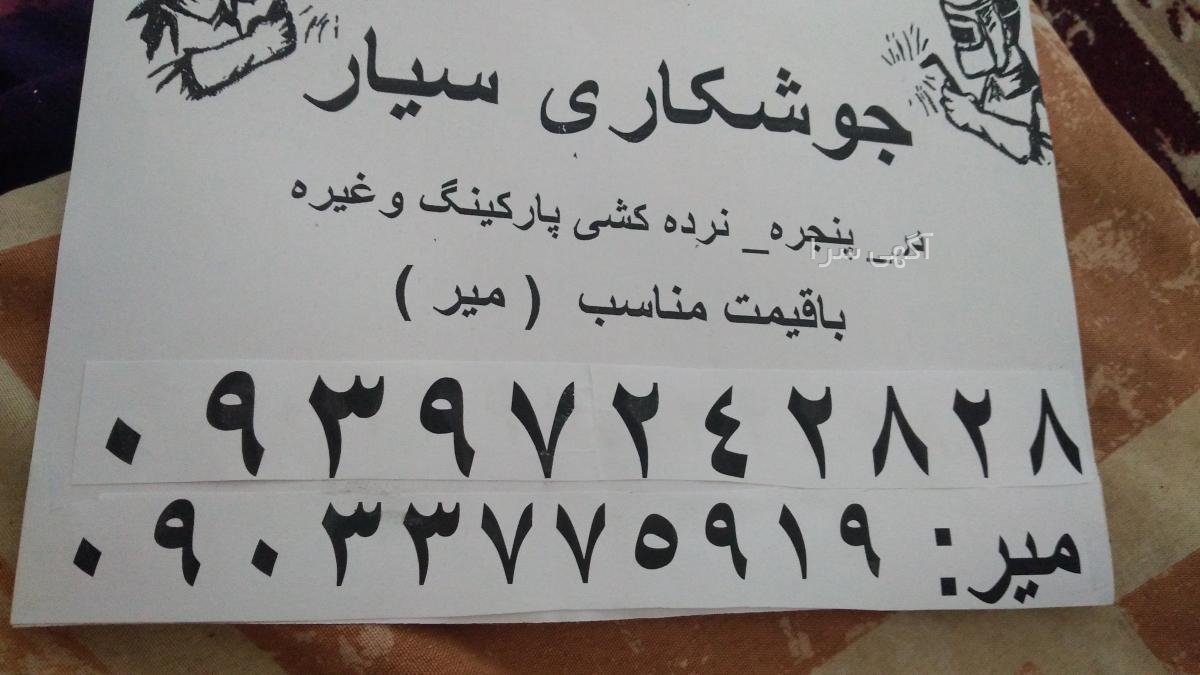 جوشکاری سیار
_ پنجره_ نرده کشی پارکینگ وغیره
آگهی سرا
باقیمت مناسب ( میر )
٠٩٣٩٧٢٤٢٨٢٨
میر: ٠٩٠٣٣٧٧٥٩١٩